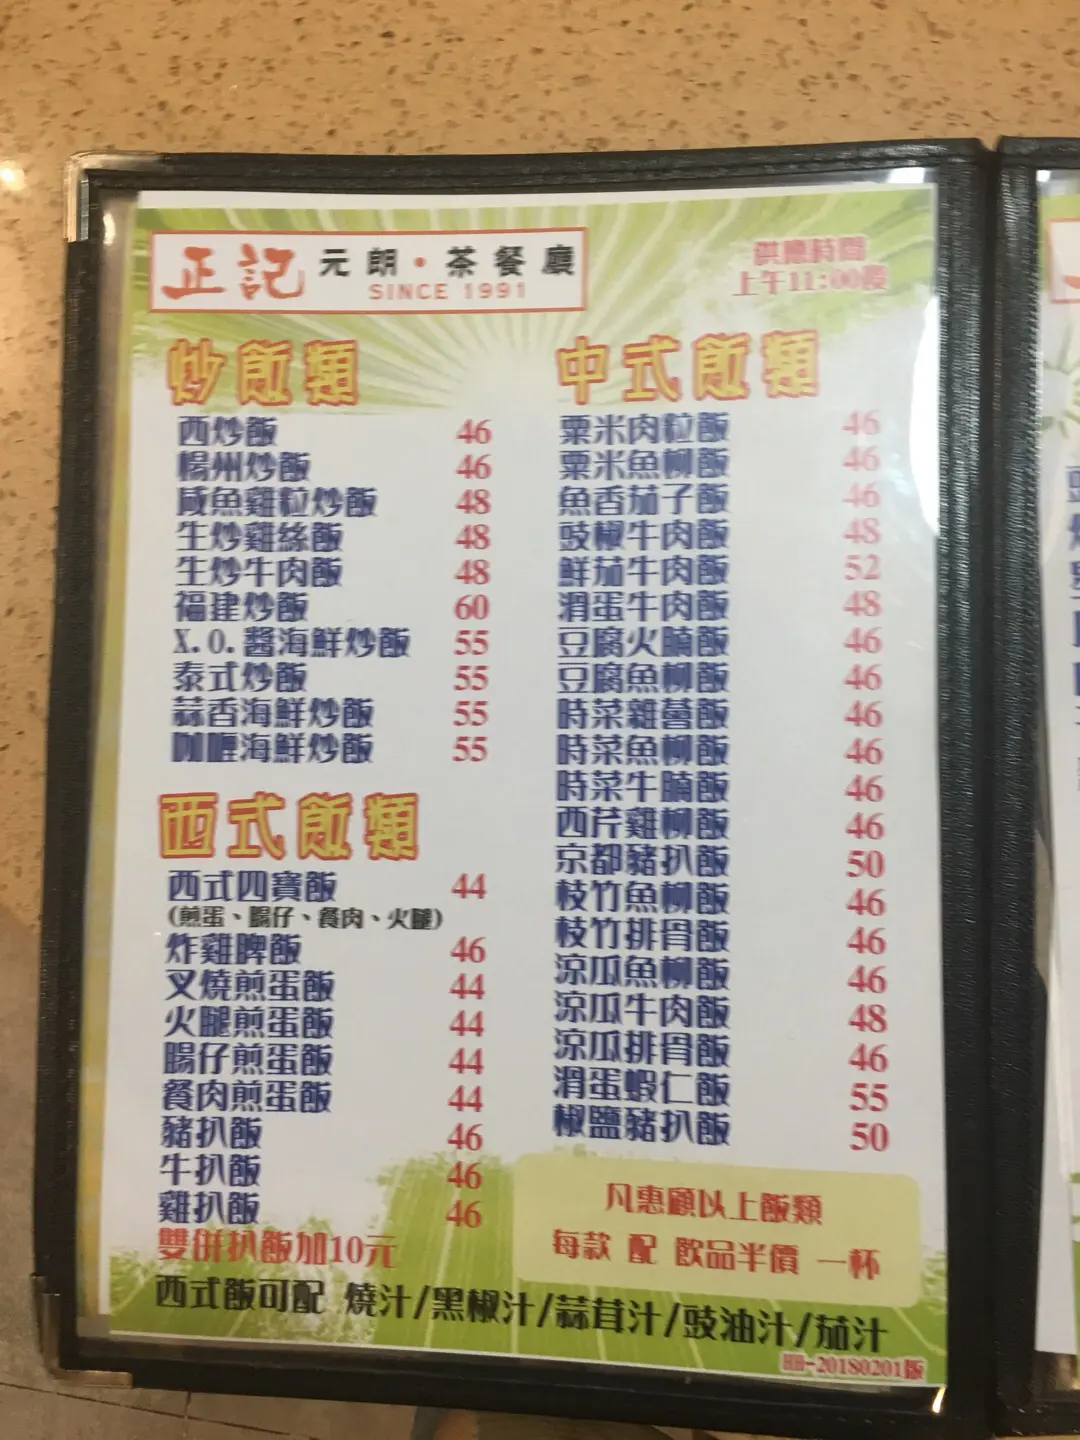 正記 元朗・茶餐廳
SINCE 1991
供應時間
上午11:00後
炒飯類
西炒飯 46
楊州炒飯 46
咸魚雞粒炒飯 48
生炒雞絲飯 48
生炒牛肉飯 48
福建炒飯 60
X.O.醬海鮮炒飯 55
泰式炒飯 55
蒜香海鮮炒飯 55
咖喱海鮮炒飯 55
西式飯類
西式四寶飯 44
(煎蛋、腸仔、餐肉、火腿)
炸雞脾飯 46
叉燒煎蛋飯 44
火腿煎蛋飯 44
腸仔煎蛋飯 44
餐肉煎蛋飯 44
豬扒飯 46
牛扒飯 46
雞扒飯 46
雙併扒飯加10元
中式飯類
粟米肉粒飯 46
粟米魚柳飯 46
魚香茄子飯 46
豉椒牛肉飯 48
鮮茄牛肉飯 52
滑蛋牛肉飯 48
豆腐火腩飯 46
豆腐魚柳飯 46
時菜雜菌飯 46
時菜魚柳飯 46
時菜牛腩飯 46
西芹雞柳飯 46
京都豬扒飯 50
枝竹魚柳飯 46
枝竹排骨飯 46
涼瓜魚柳飯 46
涼瓜牛肉飯 48
涼瓜排骨飯 46
滑蛋蝦仁飯 55
椒鹽豬扒飯 50
凡惠顧以上飯類
每款 配 飲品半價 一杯
西式飯可配 燒汁/黑椒汁/蒜茸汁/豉油汁/茄汁
-20180201版